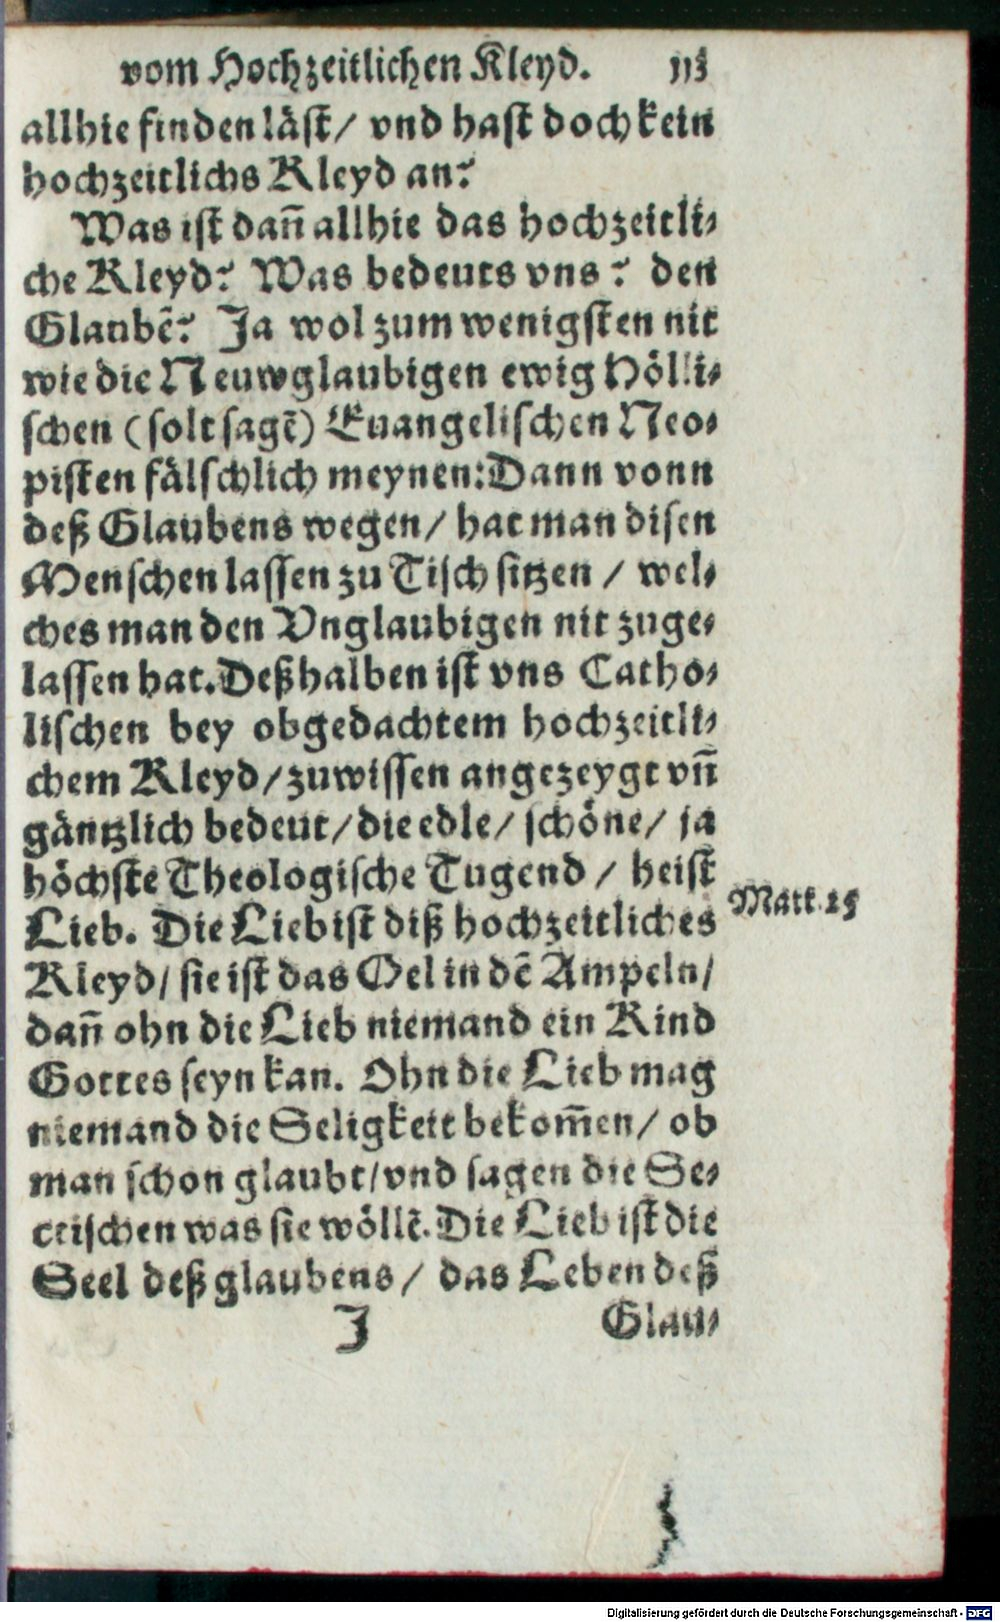 vom Hochzeitlichen Kleyd. 113
allhie finden läst/ vnd hast doch kein
hochzeitlichs Kleyd an?
Was ist dañ allhie das hochzeitli-
che Kleyd? Was bedeuts vns? den
Glaubẽ? Ja wol zum wenigsten nit
wie die Neuwglaubigen ewig Hölli-
schen (solt sagẽ) Euangelischen Neo-
pisten fälschlich meynen: Dann vonn
deß Glaubens wegen/ hat man disen
Menschen lassen zu Tisch sitzen/ wel-
ches man den Vnglaubigen nit zuge-
lassen hat. Deßhalben ist vns Catho-
lischen bey obgedachtem hochzeitli-
chem Kleyd/ zuwissen angezeygt vñ
gäntzlich bedeut/ die edle/ schöne/ ja
höchste Theologische Tugend/ heist
Lieb. Die Lieb ist diß hochzeitliches
Matt. 25
Kleyd/ sie ist das Oel in dẽ Ampeln/
dañ ohn die Lieb niemand ein Kind
Gottes seyn kan. Ohn die Lieb mag
niemand die Seligkeit bekom̃en/ ob
man schon glaubt/ vnd sagen die Se-
ctischen was sie wöllẽ. Die Lieb ist die
Seel deß glaubens/ das Leben deß
J Glau-
Digitalisierung gefördert durch die Deutsche Forschungsgemeinschaft - DFG